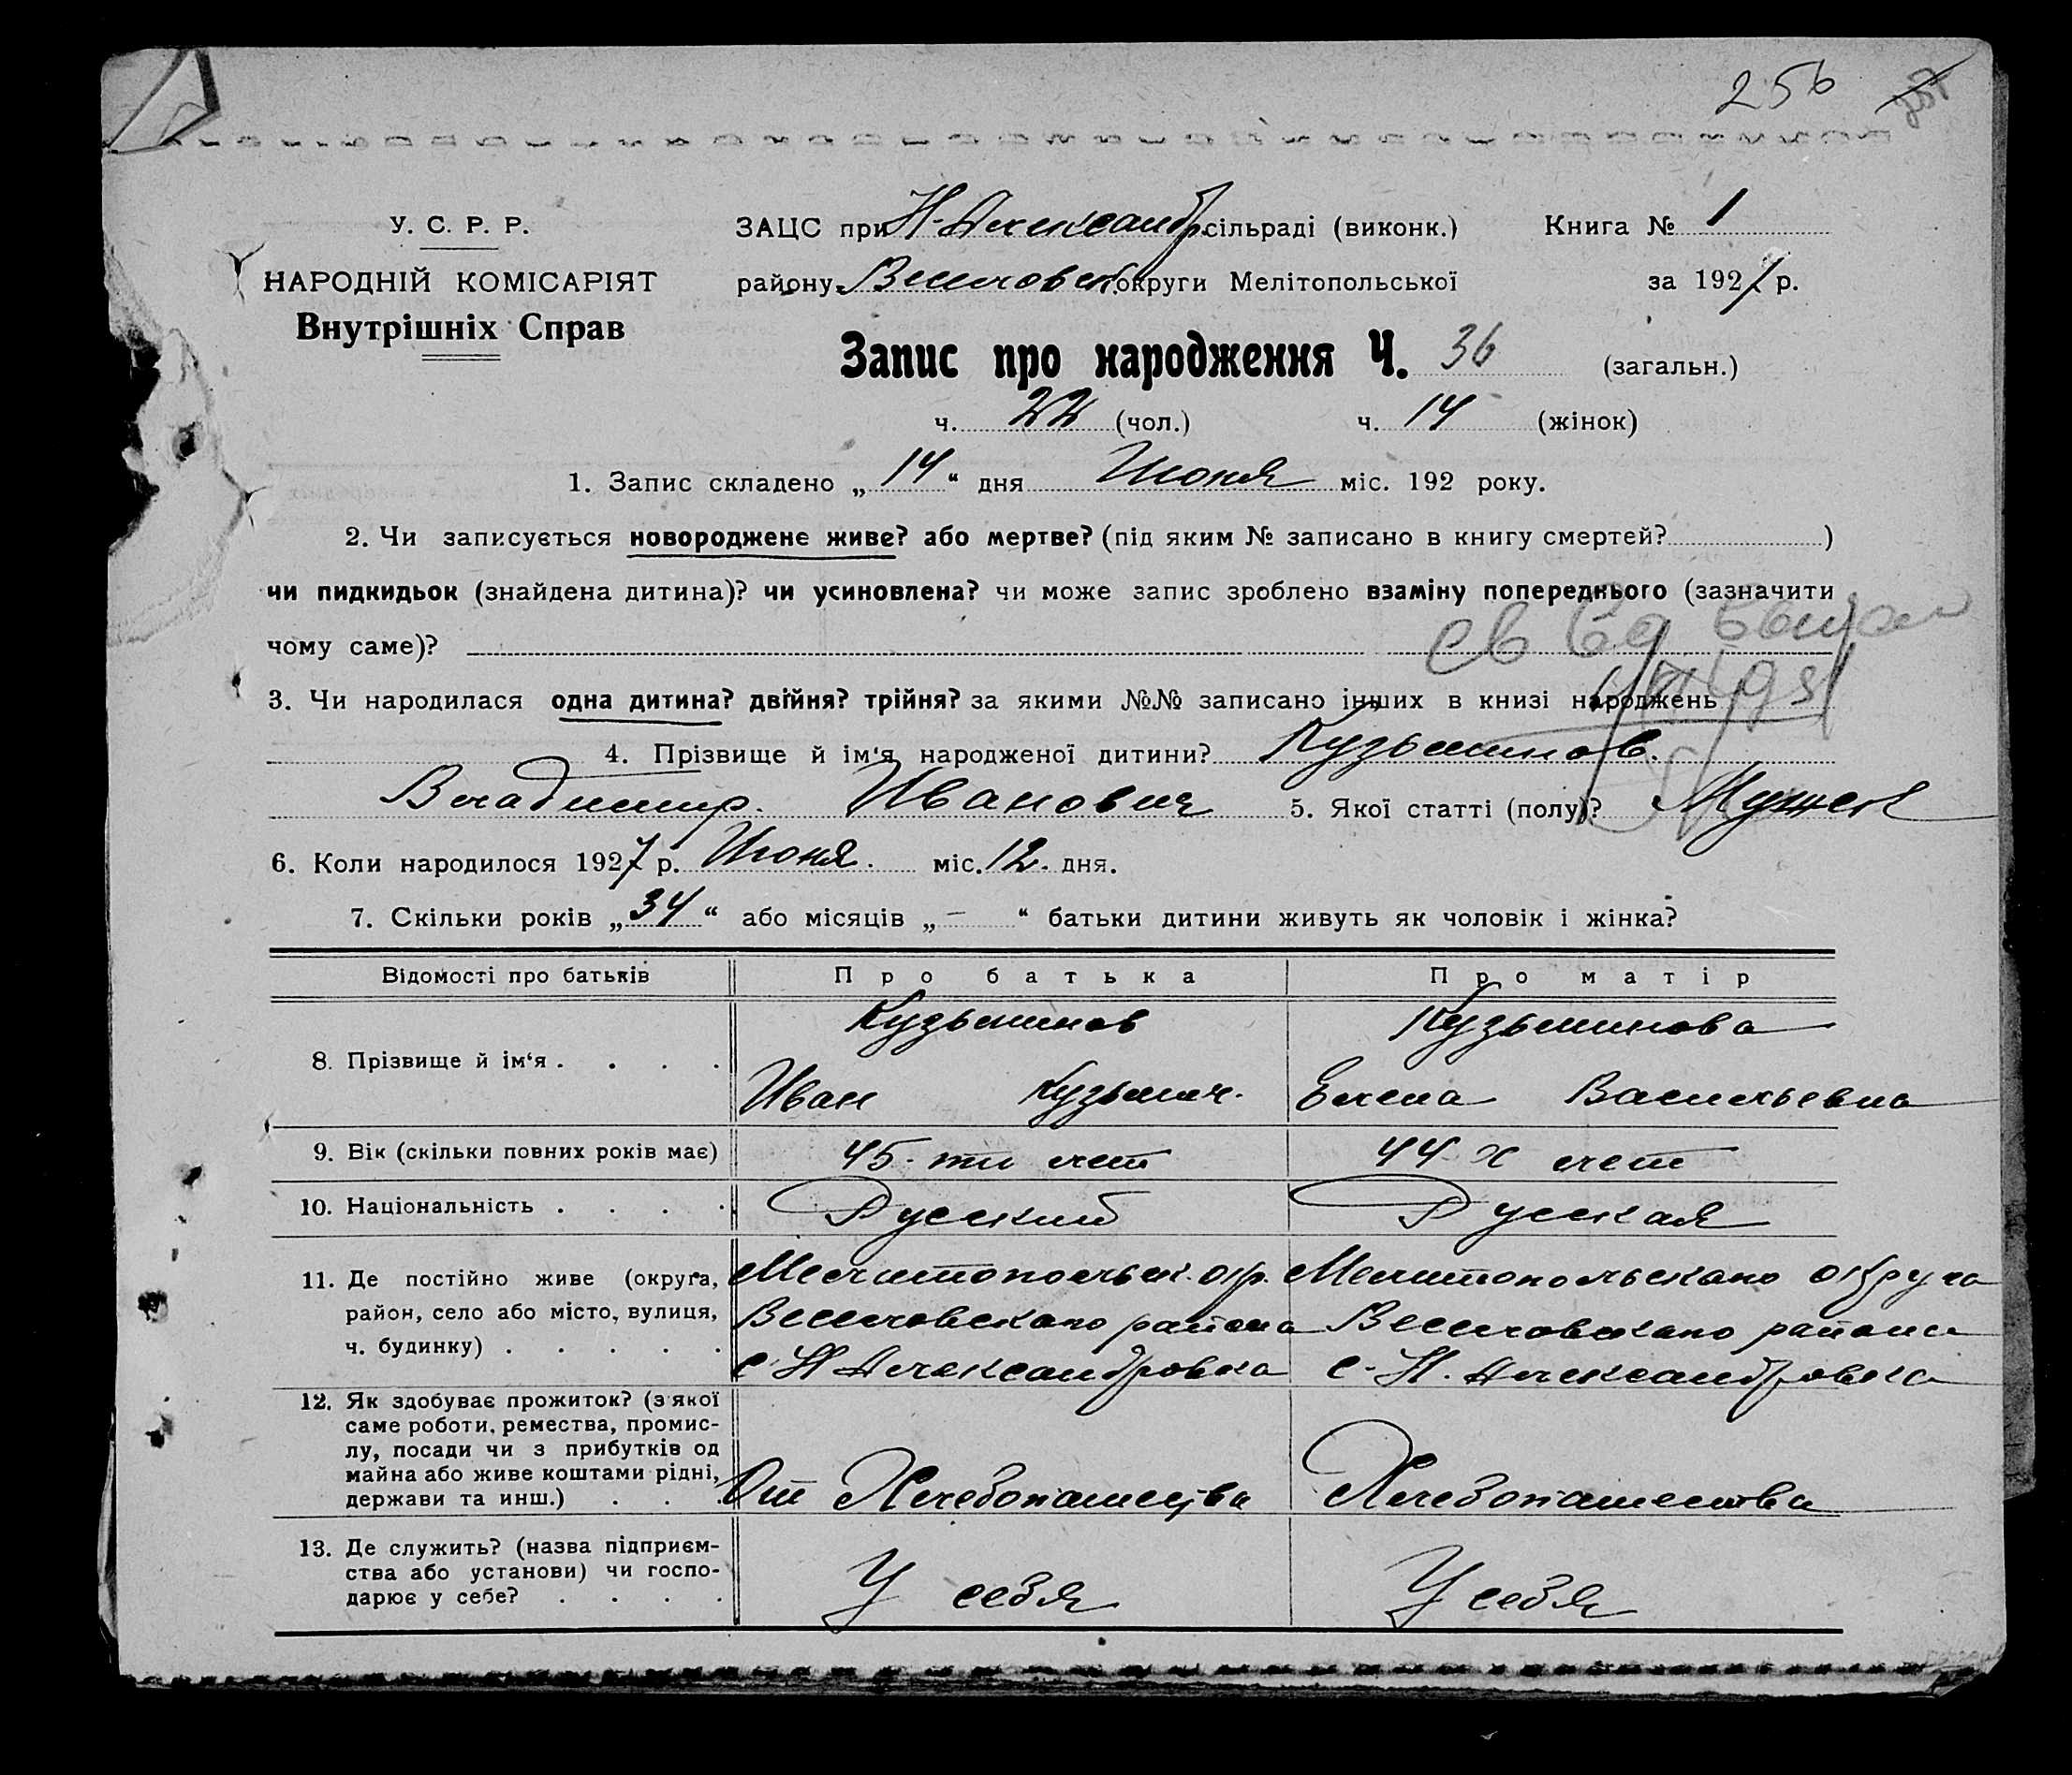 256
У. С. Р. Р.
НАРОДНІЙ КОМІСАРІЯТ
Внутрішніх Справ
ЗАЦС при Н-Александр. сільраді (виконк.)
Книга № 1
району Веселовск. округи Мелітопольської
за 1927 р.
Запис про народження Ч. 36 (загальн.)
ч. 22 (чол.) ч. 14 (жінок)
1. Запис складено „14“ дня Июня міс. 192 року.
2. Чи записується новороджене живе? або мертве? (під яким № записано в книгу смертей? )
чи пидкидьок (знайдена дитина)? чи усиновлена? чи може запис зроблено взаміну попереднього (зазначити
чому саме)?
3. Чи народилася одна дитина? двійня? трійня? за якими №№ записано інших в книзі народжень
4. Прізвище й ім‘я народженої дитини? Кузьминов.
Владимир. Иванович 5. Якої статті (полу)? Мужск
6. Коли народилося 1927 р. Июня. міс. 12. дня.
7. Скільки років „34“ або місяців „—“ батьки дитини живуть як чоловік і жінка?
Відомості про батьків Про батька Про матір
8. Прізвище й ім‘я . . . . Кузьминов Кузьминова
Иван Кузьмич. Елена Васильевна
9. Вік (скільки повних років має) 45-ти лет 44 х лет
10. Національність . . . . Русский Русская
11. Де постійно живе (округа, Мелитопольск. окр. Мелитопольского округа
район, село або місто, вулиця, Веселовского района Веселовского района
ч. будинку) . . . . . с-Н Александровка с-Н. Александровка
12. Як здобуває прожиток? (з якої
саме роботи, ремества, промис-
лу, посади чи з прибутків од
майна або живе коштами рідні,
держави та инш.) . . . От Хлебопашества Хлебопашества
13. Де служить? (назва підприєм-
ства або установи) чи госпо- У себя У себя
дарює у себе? . . . .